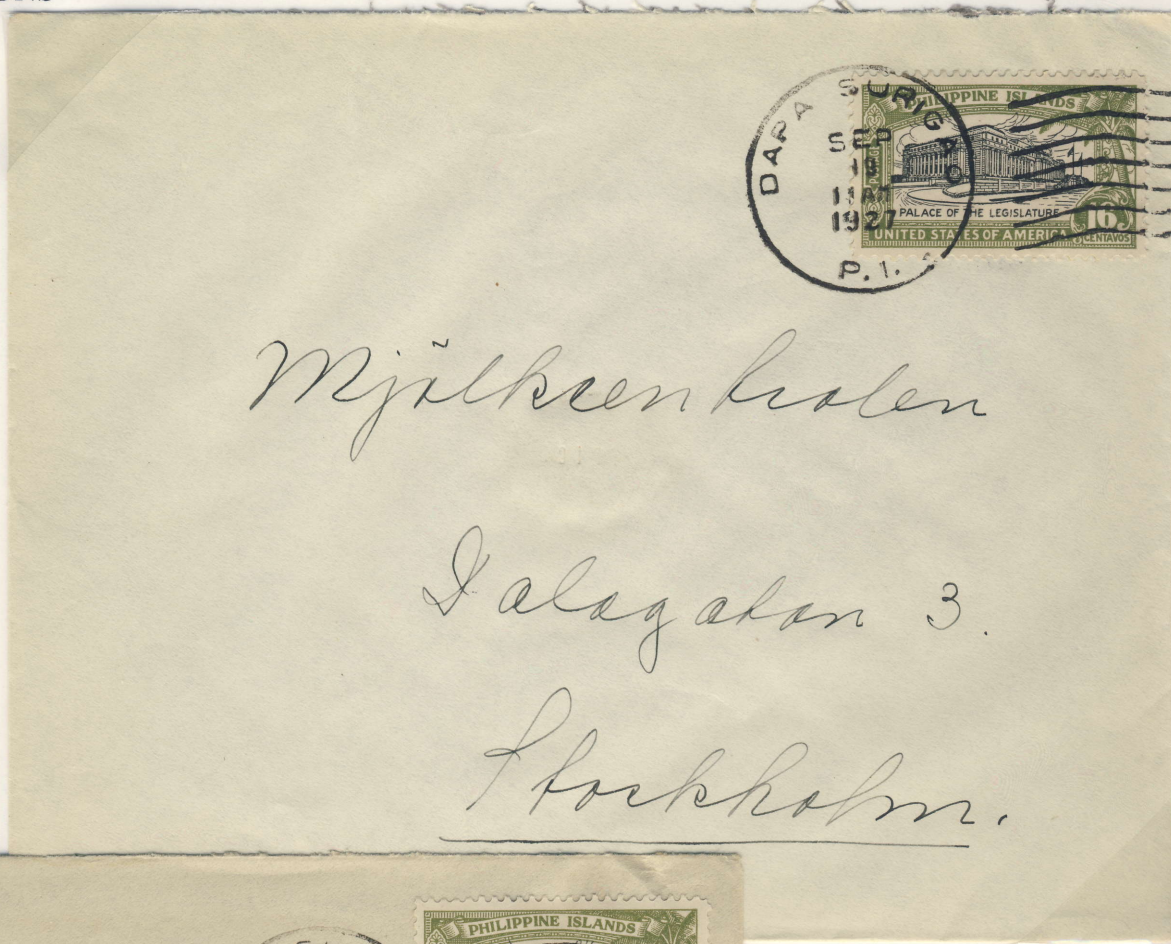 DAPA SURIGAO
SEP
11AM
1927
P.I.
PHILIPPINE ISLANDS
PALACE OF THE LEGISLATURE
16
CENTAVOS
UNITED STATES OF AMERICA
Mjölkcentralen
Dalagatan 3.
Stockholm.
PHILIPPINE ISLANDS